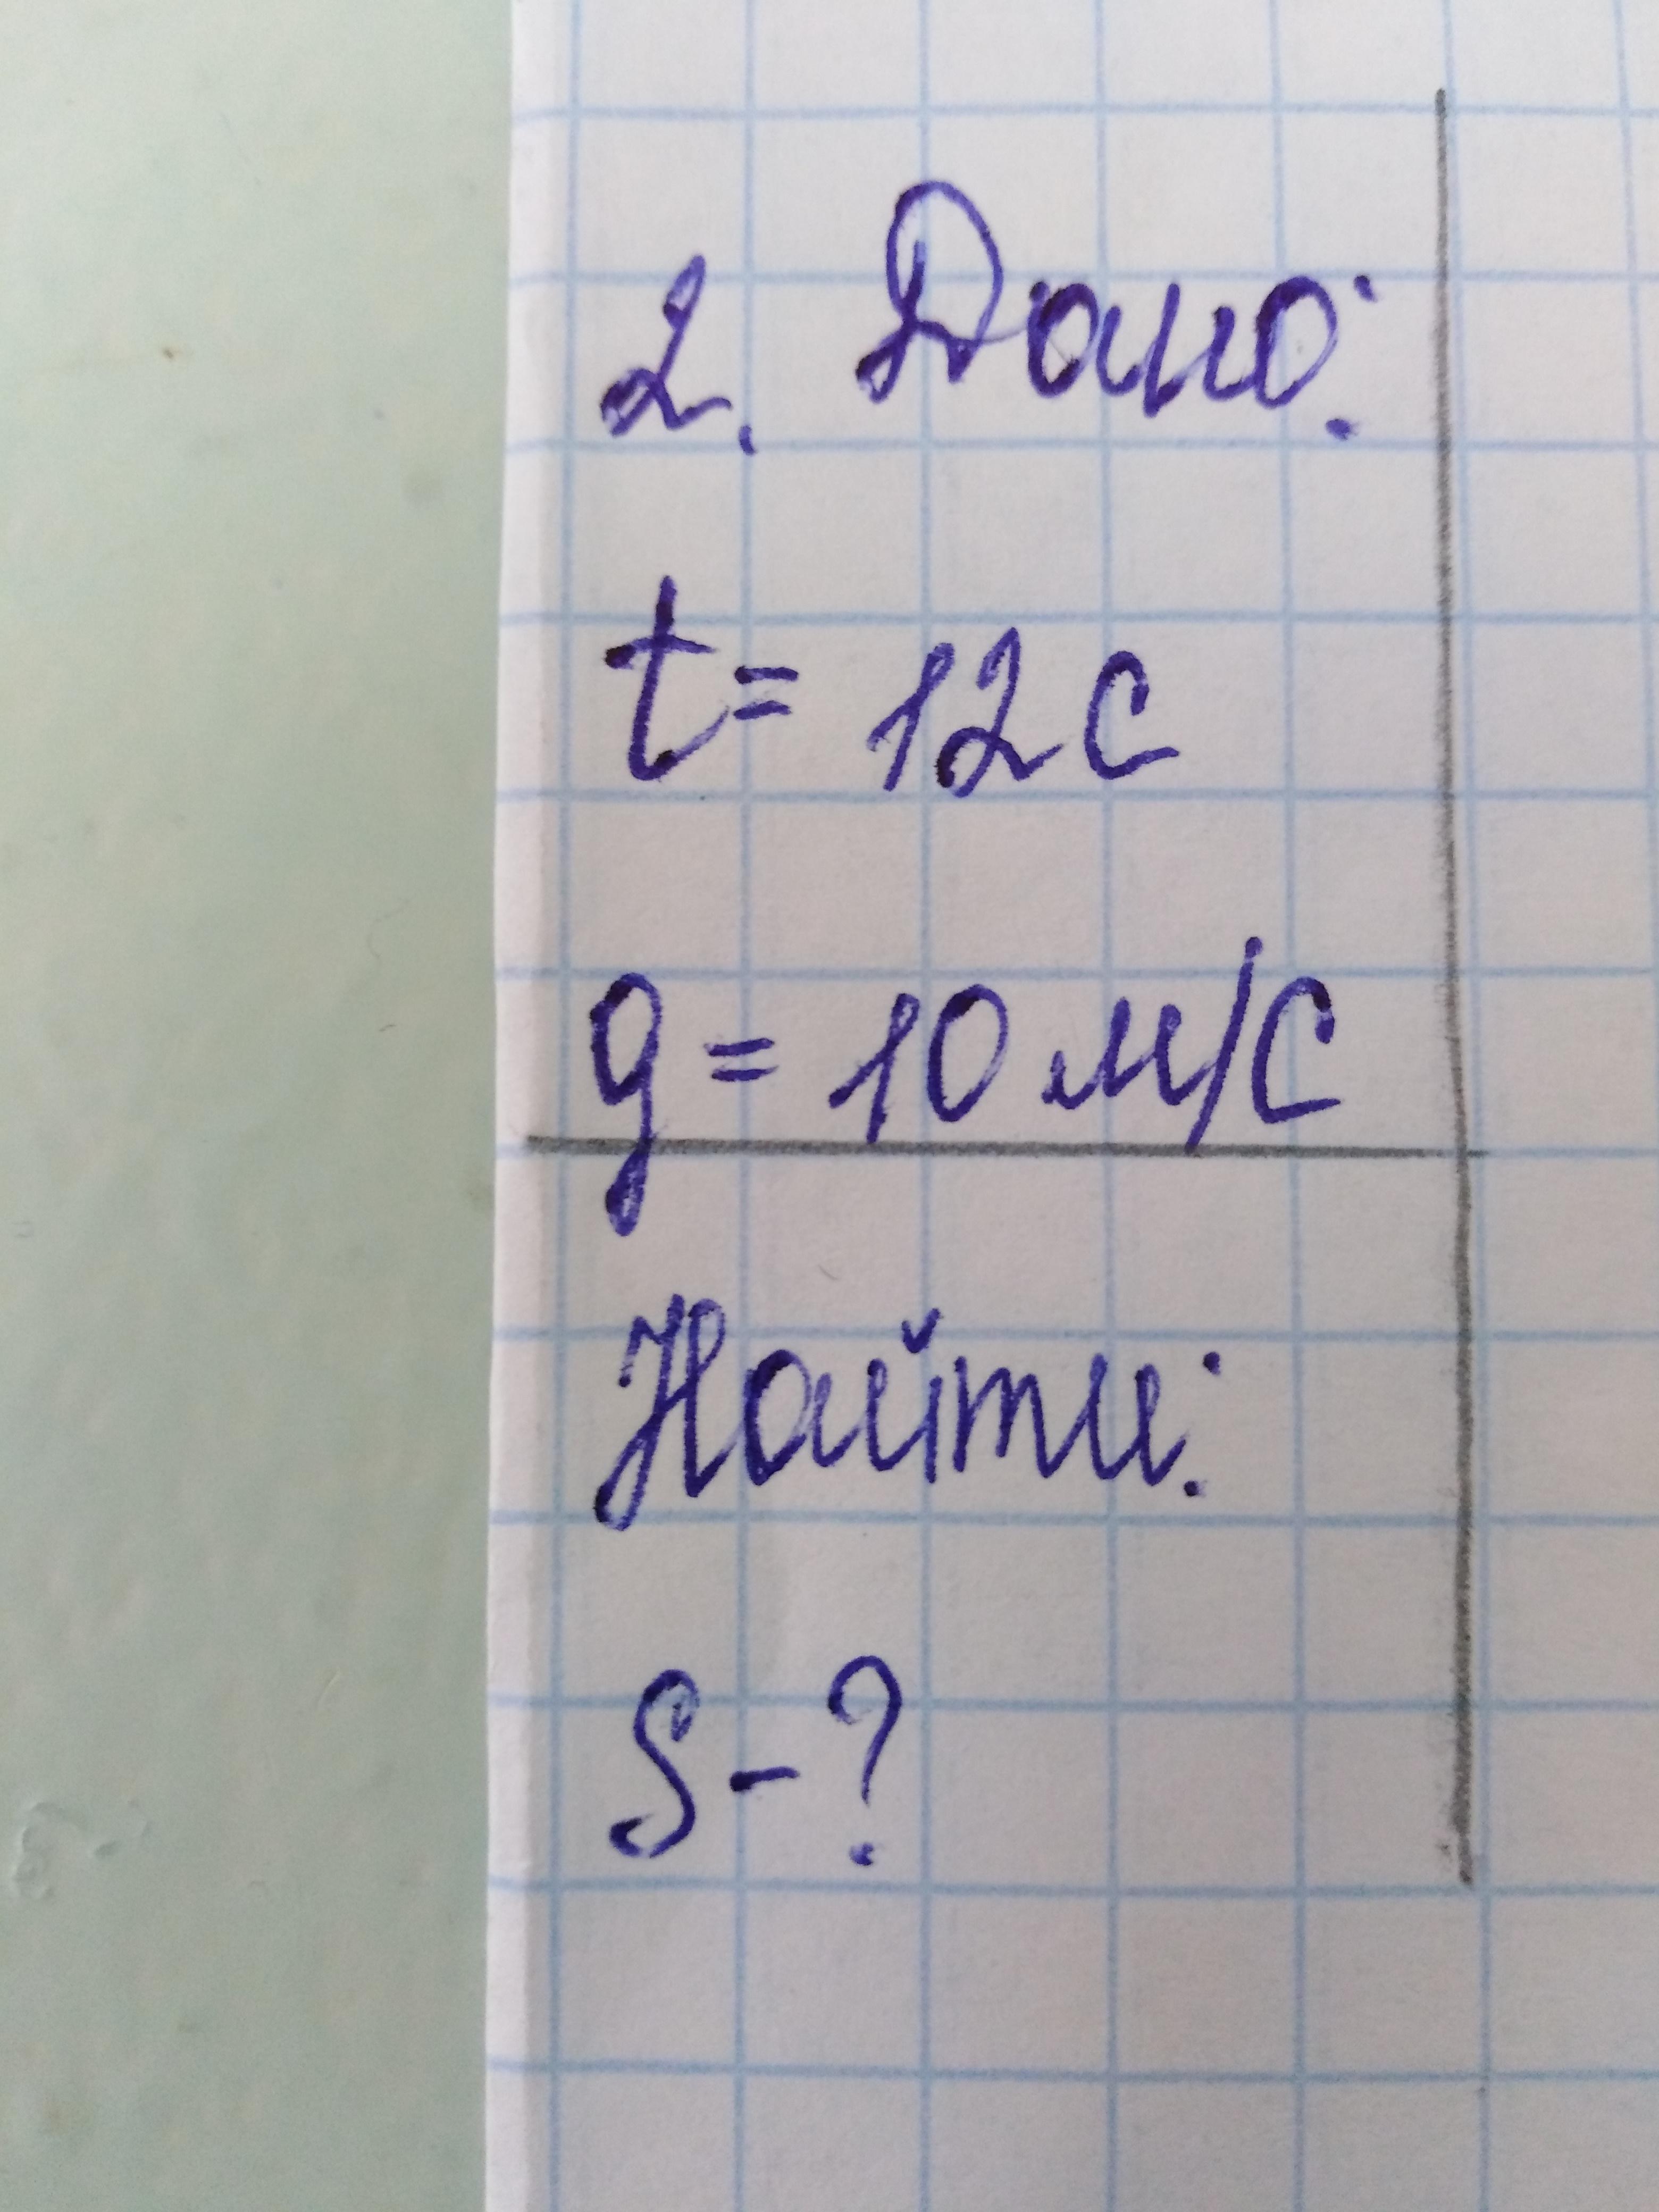 2. Дано:
t = 12 с
g = 10 м/с
Найти:
S - ?